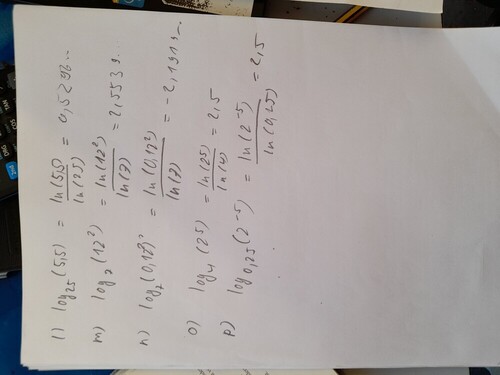 l) log₂₅(5,5) = ln(5,5)/ln(25) = 0,5296...
m) log₇(12²) = ln(12²)/ln(7) = 2,5539...
n) log₇(0,12²) = ln(0,12²)/ln(7) = -2,1919...
o) log₄(2⁵) = ln(2⁵)/ln(4) = 2,5
p) log₀,₂₅(2⁻⁵) = ln(2⁻⁵)/ln(0,25) = 2,5